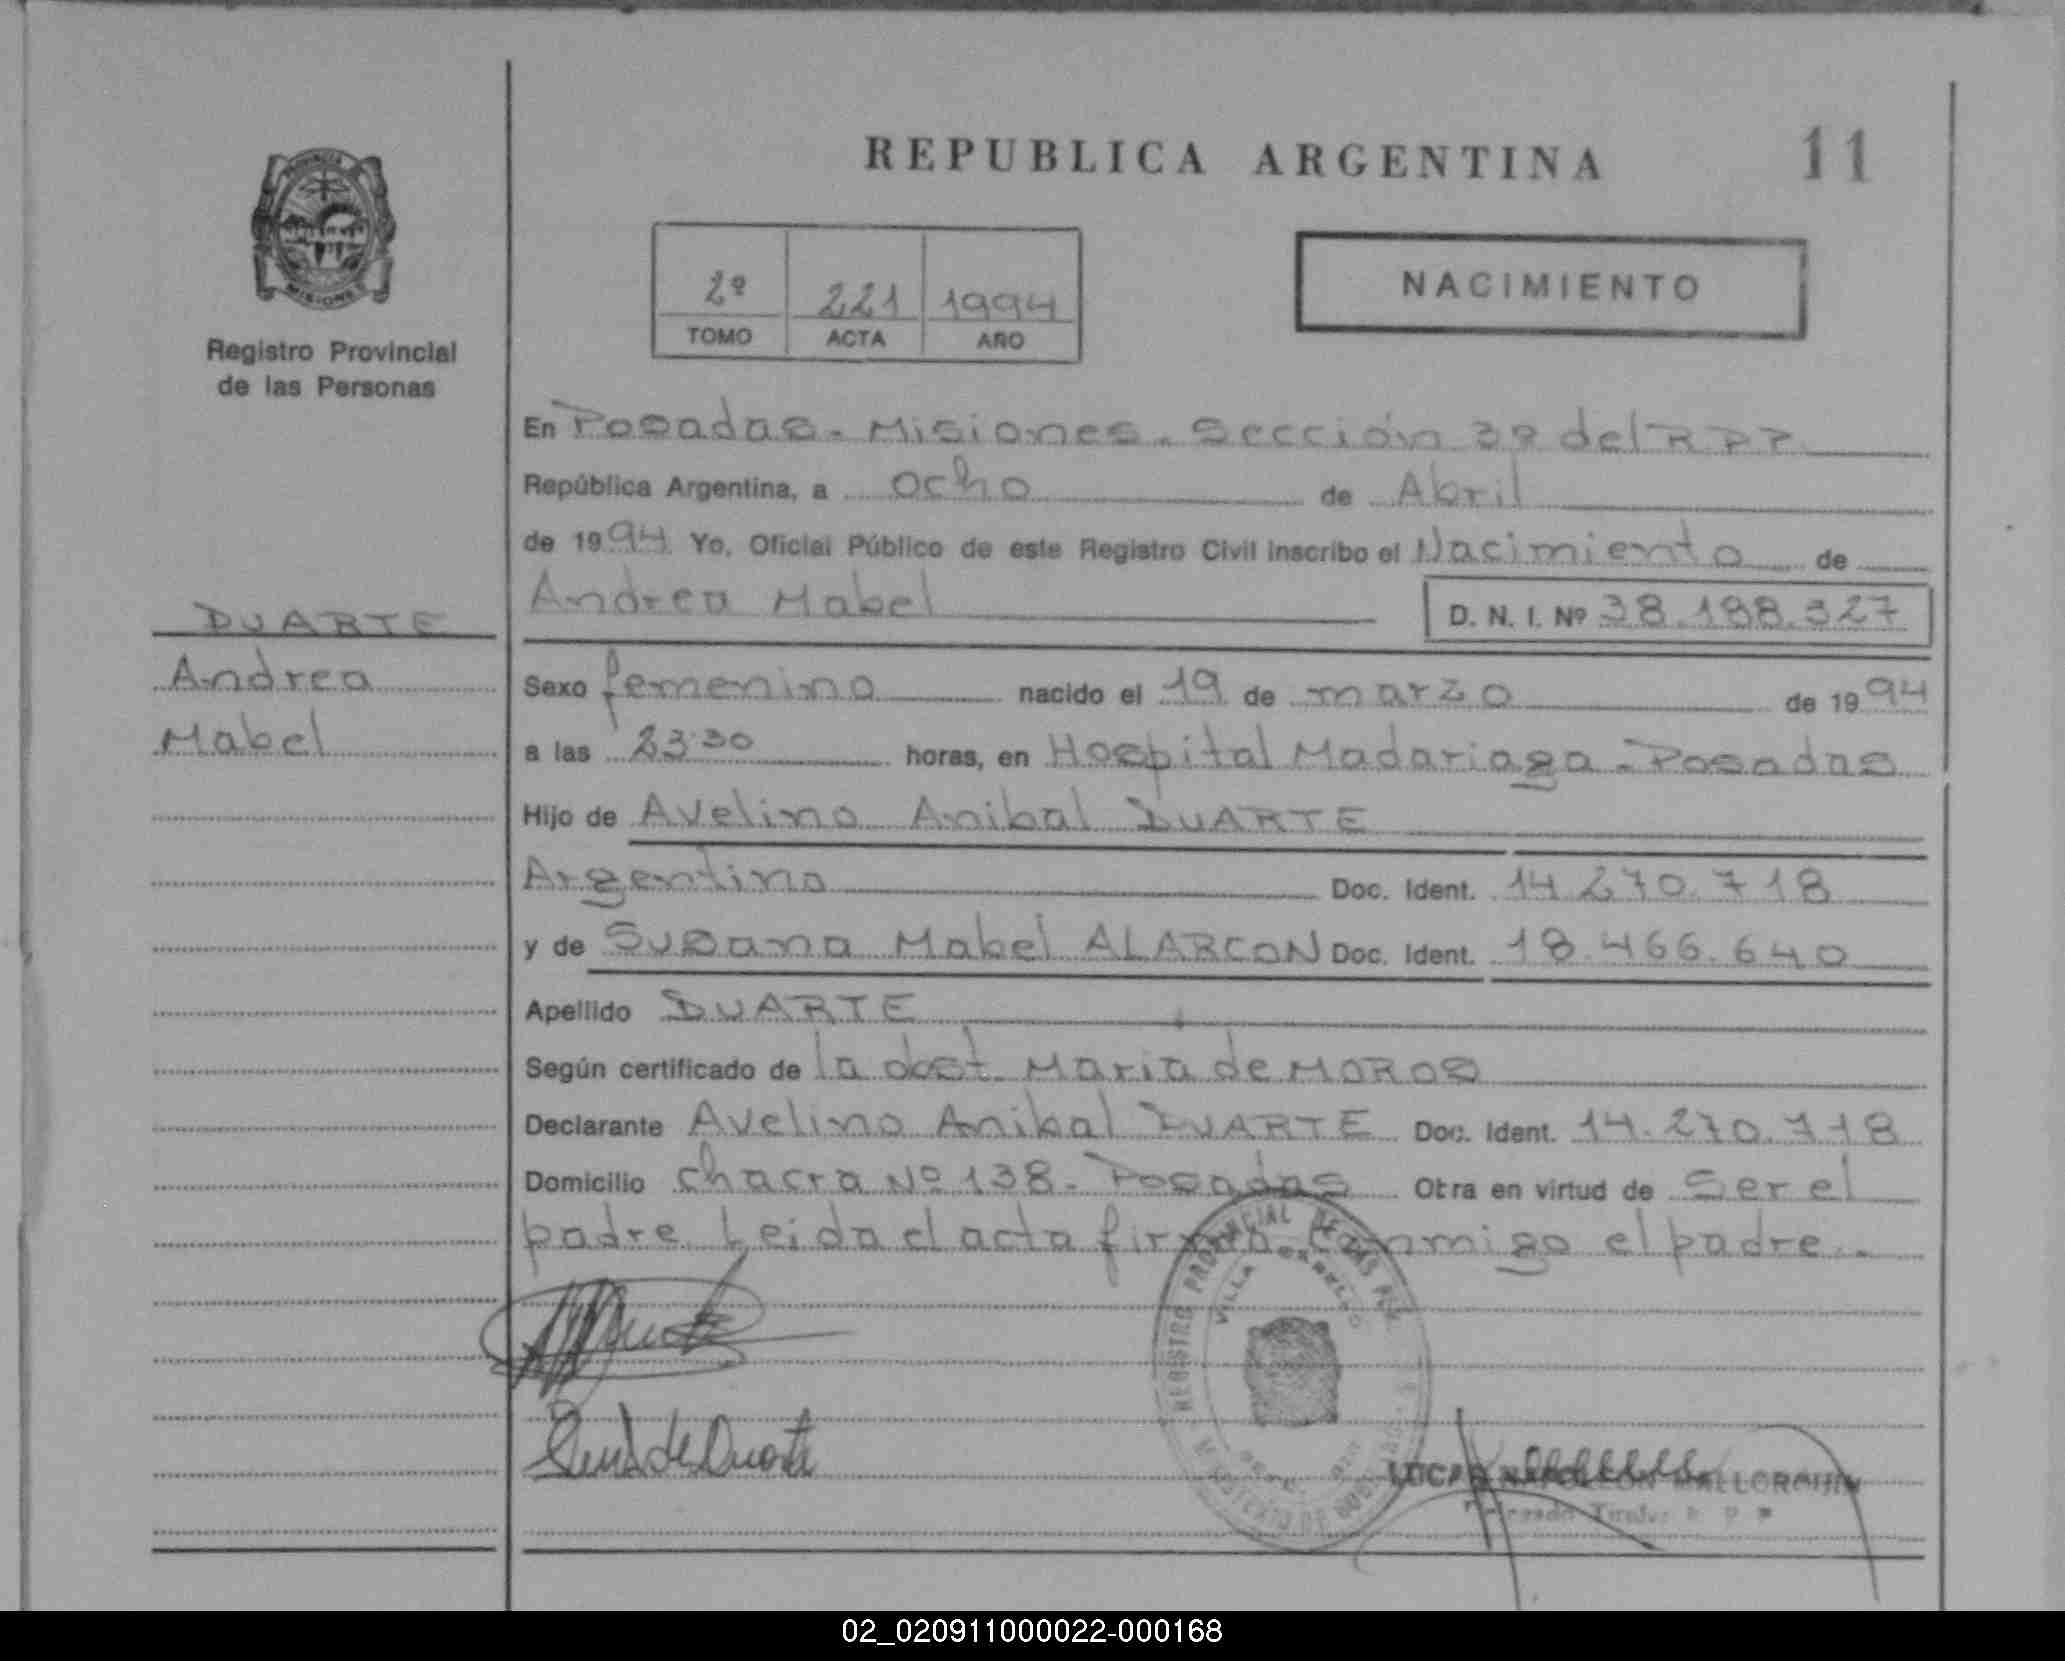 REPUBLICA ARGENTINA
11
PROVINCIA
MISIONES
Registro Provincial
de las Personas
2º 221 1994
TOMO ACTA AÑO
NACIMIENTO
En Posadas - Misiones - Sección 3ª del R P P
República Argentina, a ocho de Abril
de 1994 Yo, Oficial Público de este Registro Civil inscribo el Nacimiento de
Andrea Mabel D. N. I. Nº 38.188.327
DUARTE
Andrea
Mabel
Sexo femenino nacido el 19 de marzo de 1994
a las 23:30 horas, en Hospital Madariaga - Posadas
Hijo de Avelino Anibal DUARTE
Argentino Doc. Ident. 14.270.718
y de Susana Mabel ALARCON Doc. Ident. 18.466.640
Apellido DUARTE
Según certificado de la obst. Maria de MOROS
Declarante Avelino Anibal DUARTE Doc. Ident. 14.270.718
Domicilio chacra Nº 138 - Posadas Otra en virtud de ser el
padre. Leida el acta firman conmigo el padre.
REGISTRO PROVINCIAL DE LAS
VILLA
de Duarte
NAPOLEON MALLORQUIN
Titular R P P
02_020911000022-000168